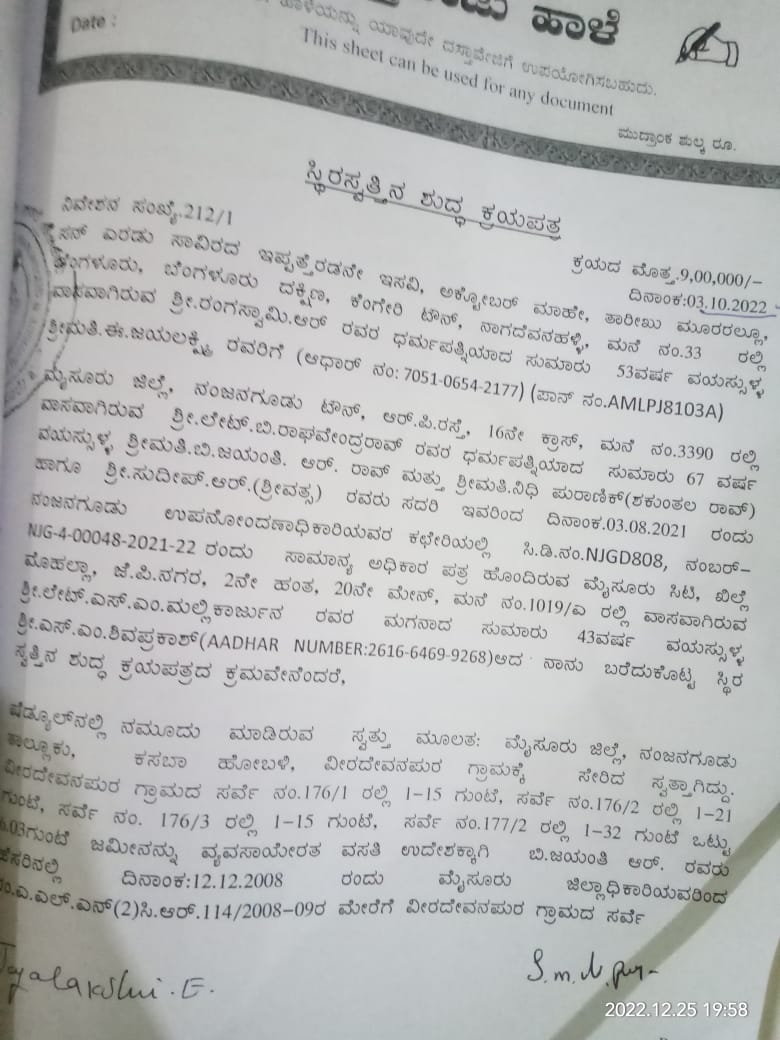 ಹಾಳೆ
Date :
ಹಾಳೆಯನ್ನು ಯಾವುದೇ ದಸ್ತಾವೇಜಿಗೆ ಉಪಯೋಗಿಸಬಹುದು.
This sheet can be used for any document
ಮುದ್ರಾಂಕ ಶುಲ್ಕ ರೂ.
ಸ್ಥಿರಸ್ವತ್ತಿನ ಶುದ್ಧ ಕ್ರಯಪತ್ರ
ನಿವೇಶನ ಸಂಖ್ಯೆ.212/1
ಕ್ರಯದ ಮೊತ್ತ.9,00,000/-
ದಿನಾಂಕ:03.10.2022
ಸನ್ ಎರಡು ಸಾವಿರದ ಇಪ್ಪತ್ತೆರಡನೇ ಇಸವಿ, ಅಕ್ಟೋಬರ್ ಮಾಹೇ, ತಾರೀಖು ಮೂರರಲ್ಲೂ,
ಬೆಂಗಳೂರು, ಬೆಂಗಳೂರು ದಕ್ಷಿಣ, ಕೆಂಗೇರಿ ಟೌನ್, ನಾಗದೇವನಹಳ್ಳಿ, ಮನೆ ನಂ.33 ರಲ್ಲಿ
ವಾಸವಾಗಿರುವ ಶ್ರೀ.ರಂಗಸ್ವಾಮಿ.ಆರ್ ರವರ ಧರ್ಮಪತ್ನಿಯಾದ ಸುಮಾರು 53ವರ್ಷ ವಯಸ್ಸುಳ್ಳ
ಶ್ರೀಮತಿ.ಈ.ಜಯಲಕ್ಷ್ಮಿ ರವರಿಗೆ (ಆಧಾರ್ ನಂ: 7051-0654-2177) (ಪಾನ್ ನಂ.AMLPJ8103A)
ಮೈಸೂರು ಜಿಲ್ಲೆ, ನಂಜನಗೂಡು ಟೌನ್, ಆರ್.ಪಿ.ರಸ್ತೆ, 16ನೇ ಕ್ರಾಸ್, ಮನೆ ನಂ.3390 ರಲ್ಲಿ
ವಾಸವಾಗಿರುವ ಶ್ರೀ.ಲೇಟ್.ಬಿ.ರಾಘವೇಂದ್ರರಾವ್ ರವರ ಧರ್ಮಪತ್ನಿಯಾದ ಸುಮಾರು 67 ವರ್ಷ
ವಯಸ್ಸುಳ್ಳ ಶ್ರೀಮತಿ.ಬಿ.ಜಯಂತಿ. ಆರ್. ರಾವ್ ಮತ್ತು ಶ್ರೀಮತಿ.ನಿಧಿ ಪುರಾಣಿಕ್(ಶಕುಂತಲ ರಾವ್)
ಹಾಗೂ ಶ್ರೀ.ಸುದೀಪ್.ಆರ್.(ಶ್ರೀವತ್ಸ) ರವರು ಸದರಿ ಇವರಿಂದ ದಿನಾಂಕ.03.08.2021 ರಂದು
ನಂಜನಗೂಡು ಉಪನೋಂದಣಾಧಿಕಾರಿಯವರ ಕಛೇರಿಯಲ್ಲಿ ಸಿ.ಡಿ.ನಂ.NJGD808, ನಂಬರ್-
NJG-4-00048-2021-22 ರಂದು ಸಾಮಾನ್ಯ ಅಧಿಕಾರ ಪತ್ರ ಹೊಂದಿರುವ ಮೈಸೂರು ಸಿಟಿ, ಖಿಲ್ಲೆ
ಮೊಹಲ್ಲಾ, ಜೆ.ಪಿ.ನಗರ, 2ನೇ ಹಂತ, 20ನೇ ಮೇನ್, ಮನೆ ನಂ.1019/ಎ ರಲ್ಲಿ ವಾಸವಾಗಿರುವ
ಶ್ರೀ.ಲೇಟ್.ಎಸ್.ಎಂ.ಮಲ್ಲಿಕಾರ್ಜುನ ರವರ ಮಗನಾದ ಸುಮಾರು 43ವರ್ಷ ವಯಸ್ಸುಳ್ಳ
ಶ್ರೀ.ಎಸ್.ಎಂ.ಶಿವಪ್ರಕಾಶ್(AADHAR NUMBER:2616-6469-9268)ಆದ ನಾನು ಬರೆದುಕೊಟ್ಟ ಸ್ಥಿರ
ಸ್ವತ್ತಿನ ಶುದ್ಧ ಕ್ರಯಪತ್ರದ ಕ್ರಮವೇನೆಂದರೆ,
ಷೆಡ್ಯೂಲ್‌ನಲ್ಲಿ ನಮೂದು ಮಾಡಿರುವ ಸ್ವತ್ತು ಮೂಲತ: ಮೈಸೂರು ಜಿಲ್ಲೆ, ನಂಜನಗೂಡು
ತಾಲ್ಲೂಕು, ಕಸಬಾ ಹೋಬಳಿ, ವೀರದೇವನಪುರ ಗ್ರಾಮಕ್ಕೆ ಸೇರಿದ ಸ್ವತ್ತಾಗಿದ್ದು.
ವೀರದೇವನಪುರ ಗ್ರಾಮದ ಸರ್ವೆ ನಂ.176/1 ರಲ್ಲಿ 1-15 ಗುಂಟೆ, ಸರ್ವೆ ನಂ.176/2 ರಲ್ಲಿ 1-21
ಗುಂಟೆ, ಸರ್ವೆ ನಂ. 176/3 ರಲ್ಲಿ 1-15 ಗುಂಟೆ, ಸರ್ವೆ ನಂ.177/2 ರಲ್ಲಿ 1-32 ಗುಂಟೆ ಒಟ್ಟು
6.03ಗುಂಟೆ ಜಮೀನನ್ನು ವ್ಯವಸಾಯೇರತ ವಸತಿ ಉದೇಶಕ್ಕಾಗಿ ಬಿ.ಜಯಂತಿ ಆರ್. ರವರು
ಹೆಸರಿನಲ್ಲಿ ದಿನಾಂಕ:12.12.2008 ರಂದು ಮೈಸೂರು ಜಿಲ್ಲಾಧಿಕಾರಿಯವರಿಂದ
ನಂ.ಎ.ಎಲ್.ಎನ್(2)ಸಿ.ಆರ್.114/2008-09ರ ಮೇರೆಗೆ ವೀರದೇವನಪುರ ಗ್ರಾಮದ ಸರ್ವೆ
Jayalakshmi.E.
S.m.
2022.12.25 19:58